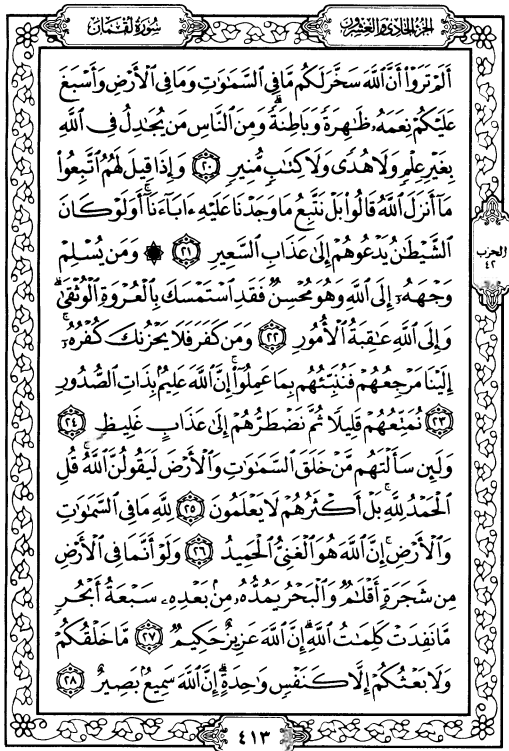 الجزء الحادي والعشرون
سورة لقمان
أَلَمْ تَرَوْا۟ أَنَّ ٱللَّهَ سَخَّرَ لَكُم مَّا فِى ٱلسَّمَٰوَٰتِ وَمَا فِى ٱلْأَرْضِ وَأَسْبَغَ
عَلَيْكُمْ نِعَمَهُۥ ظَٰهِرَةً وَبَاطِنَةً ۗ وَمِنَ ٱلنَّاسِ مَن يُجَٰدِلُ فِى ٱللَّهِ
بِغَيْرِ عِلْمٍ وَلَا هُدًى وَلَا كِتَٰبٍ مُّنِيرٍ ٢٠ وَإِذَا قِيلَ لَهُمُ ٱتَّبِعُوا۟
مَآ أَنزَلَ ٱللَّهُ قَالُوا۟ بَلْ نَتَّبِعُ مَا وَجَدْنَا عَلَيْهِ ءَابَآءَنَآ ۚ أَوَلَوْ كَانَ
ٱلشَّيْطَٰنُ يَدْعُوهُمْ إِلَىٰ عَذَابِ ٱلسَّعِيرِ ٢١ ۞ وَمَن يُسْلِمْ
وَجْهَهُۥٓ إِلَى ٱللَّهِ وَهُوَ مُحْسِنٌ فَقَدِ ٱسْتَمْسَكَ بِٱلْعُرْوَةِ ٱلْوُثْقَىٰ ۗ
وَإِلَى ٱللَّهِ عَٰقِبَةُ ٱلْأُمُورِ ٢٢ وَمَن كَفَرَ فَلَا يَحْزُنكَ كُفْرُهُۥٓ ۚ
إِلَيْنَا مَرْجِعُهُمْ فَنُنَبِّئُهُم بِمَا عَمِلُوٓا۟ ۚ إِنَّ ٱللَّهَ عَلِيمٌۢ بِذَاتِ ٱلصُّدُورِ
٢٣ نُمَتِّعُهُمْ قَلِيلًا ثُمَّ نَضْطَرُّهُمْ إِلَىٰ عَذَابٍ غَلِيظٍ ٢٤
وَلَئِن سَأَلْتَهُم مَّنْ خَلَقَ ٱلسَّمَٰوَٰتِ وَٱلْأَرْضَ لَيَقُولُنَّ ٱللَّهُ ۚ قُلِ
ٱلْحَمْدُ لِلَّهِ ۚ بَلْ أَكْثَرُهُمْ لَا يَعْلَمُونَ ٢٥ لِلَّهِ مَا فِى ٱلسَّمَٰوَٰتِ
وَٱلْأَرْضِ ۚ إِنَّ ٱللَّهَ هُوَ ٱلْغَنِىُّ ٱلْحَمِيدُ ٢٦ وَلَوْ أَنَّمَا فِى ٱلْأَرْضِ
مِن شَجَرَةٍ أَقْلَٰمٌ وَٱلْبَحْرُ يَمُدُّهُۥ مِنۢ بَعْدِهِۦ سَبْعَةُ أَبْحُرٍ
مَّا نَفِدَتْ كَلِمَٰتُ ٱللَّهِ ۗ إِنَّ ٱللَّهَ عَزِيزٌ حَكِيمٌ ٢٧ مَّا خَلْقُكُمْ
وَلَا بَعْثُكُمْ إِلَّا كَنَفْسٍ وَٰحِدَةٍ ۗ إِنَّ ٱللَّهَ سَمِيعٌۢ بَصِيرٌ ٢٨
الحزب
٤٢
٤١٣